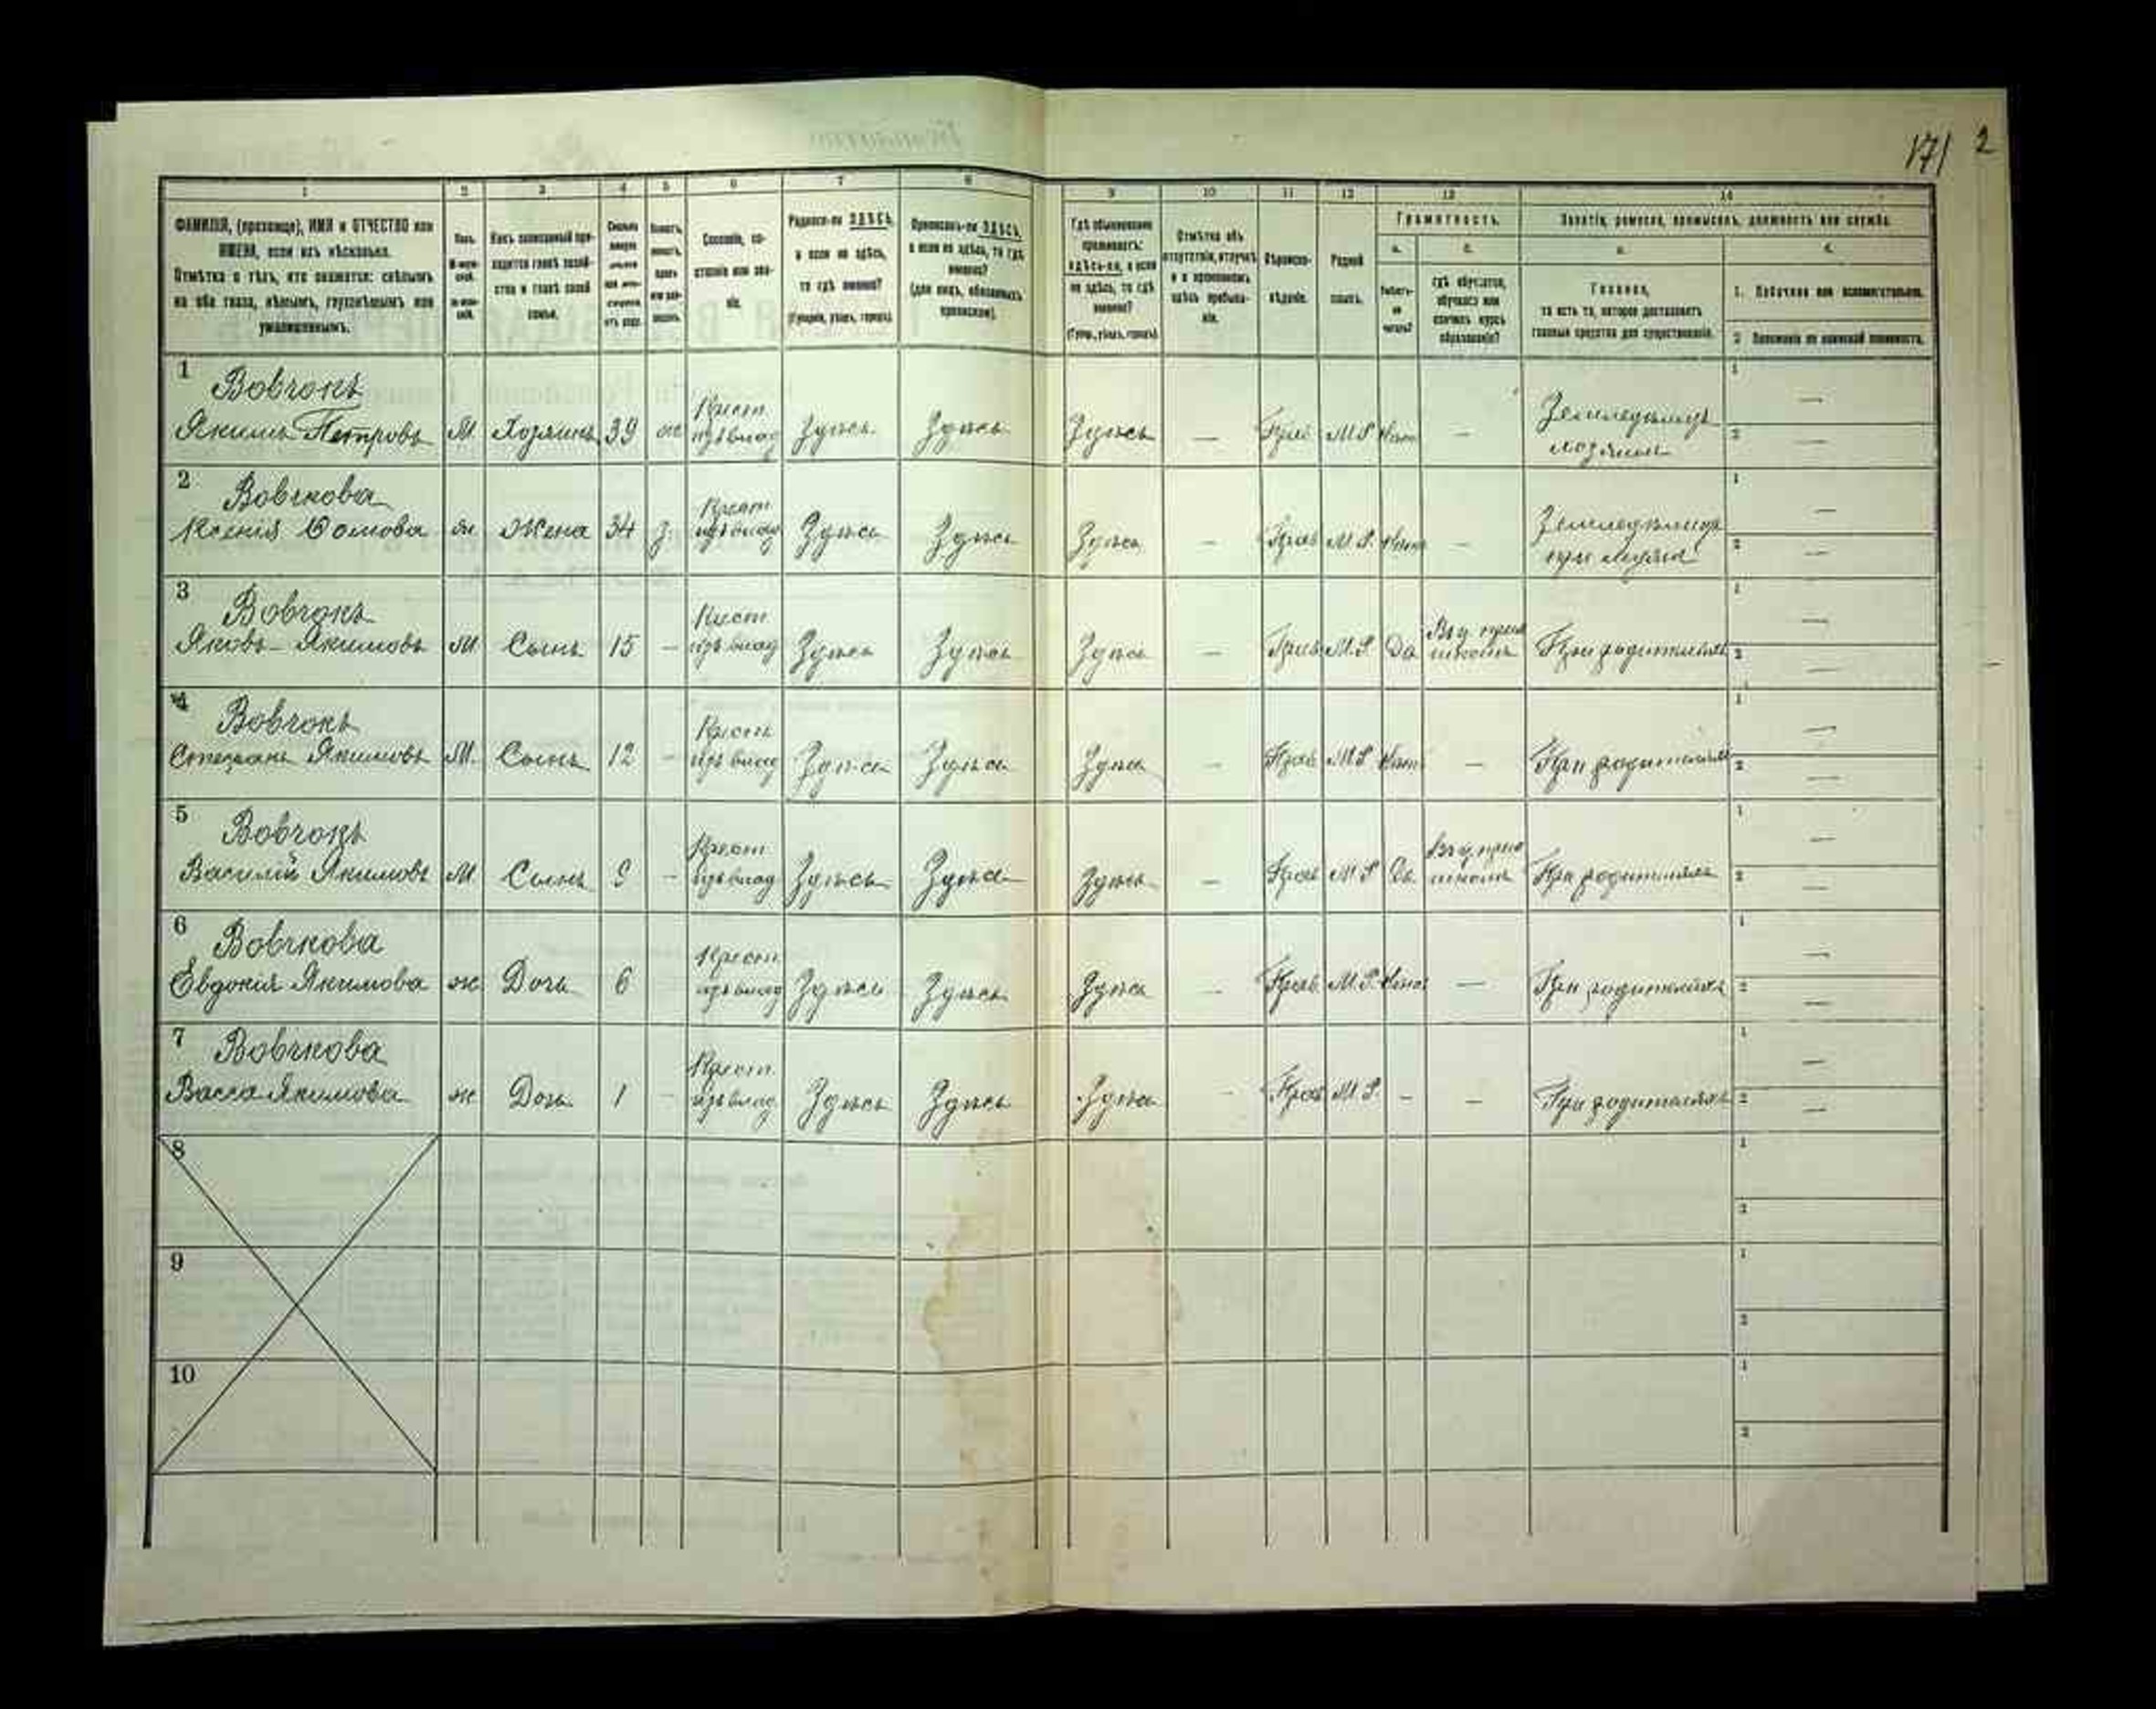 171 2
1 2 3 4 5 6 7 8 9 10 11 12 13 14
ФАМИЛІЯ, (прозвище), ИМЯ и ОТЧЕСТВО или
ИМЕНА, если ихъ нѣсколько.
Отмѣтка о тѣхъ, кто окажется: слѣпымъ
на оба глаза, нѣмымъ, глухонѣмымъ или
умалишеннымъ.
Полъ.
Какъ записанный при-
ходится главѣ хозяй-
ства и главѣ своей
семьи.
Сословіе, со-
стояніе или зва-
ніе.
Родился-ли ЗДѢСЬ,
а если не здѣсь,
то гдѣ именно?
(Губернія, уѣздъ, городъ).
Приписанъ-ли ЗДѢСЬ,
а если не здѣсь, то гдѣ
именно?
(для лицъ, обязанныхъ
припискою).
Гдѣ обыкновенно
проживаетъ:
здѣсь-ли, а если
не здѣсь, то гдѣ
именно?
(Губер., уѣздъ, городъ).
Отмѣтка объ
отсутствіи, отлучкѣ
и о временномъ
здѣсь пребыва-
ніи.
Вѣроиспо-
вѣданіе.
Родной
языкъ.
Грамотность.
а. б.
Умѣетъ-
ли
читать?
гдѣ обучается,
обучался или
кончилъ курсъ
образованія?
Занятіе, ремесло, промыселъ, должность или служба.
Главное,
то есть то, которое доставляетъ
главныя средства для существованія.
1. Побочное или вспомогательное.
2 Положеніе по воинской повинности.
1 Вовчокъ
Якимъ Петровъ М Хозяинъ 39 ж Крест. изъ влад Здѣсь Здѣсь Здѣсь — Прав М Р Нѣтъ — Земледѣлецъ хозяинъ 1 — 2 —
2 Вовчкова
Ксенія Фомова ж Жена 34 з. Крест изъ влад Здѣсь Здѣсь Здѣсь — Прав М Р. Нѣтъ — Земледѣлецъ при мужѣ 1 — 2 —
3 Вовчокъ
Яковъ Якимовъ М Сынъ 15 — Крест изъ влад Здѣсь Здѣсь Здѣсь — Прав М Р Да школѣ При родителяхъ 1 — 2 —
4 Вовчокъ
Стефанъ Якимовъ М. Сынъ 12 — Крест изъ влад Здѣсь Здѣсь Здѣсь — Прав М Р Нѣтъ — При родителяхъ 1 — 2 —
5 Вовчокъ
Василій Якимовъ М Сынъ 9 — Крест изъ влад Здѣсь Здѣсь Здѣсь — Прав М Р Да школѣ При родителяхъ 1 — 2 —
6 Вовчкова
Евдокія Якимова ж Дочь 6 Крест изъ влад Здѣсь Здѣсь Здѣсь — Прав. М Р. Нѣтъ — При родителяхъ 1 — 2 —
7 Вовчкова
Васса Якимова ж Дочь 1 — Крест. изъ влад Здѣсь Здѣсь Здѣсь — Прав М Р — — При родителяхъ 1 — 2 —
8 1 2
9 1 2
10 1 2